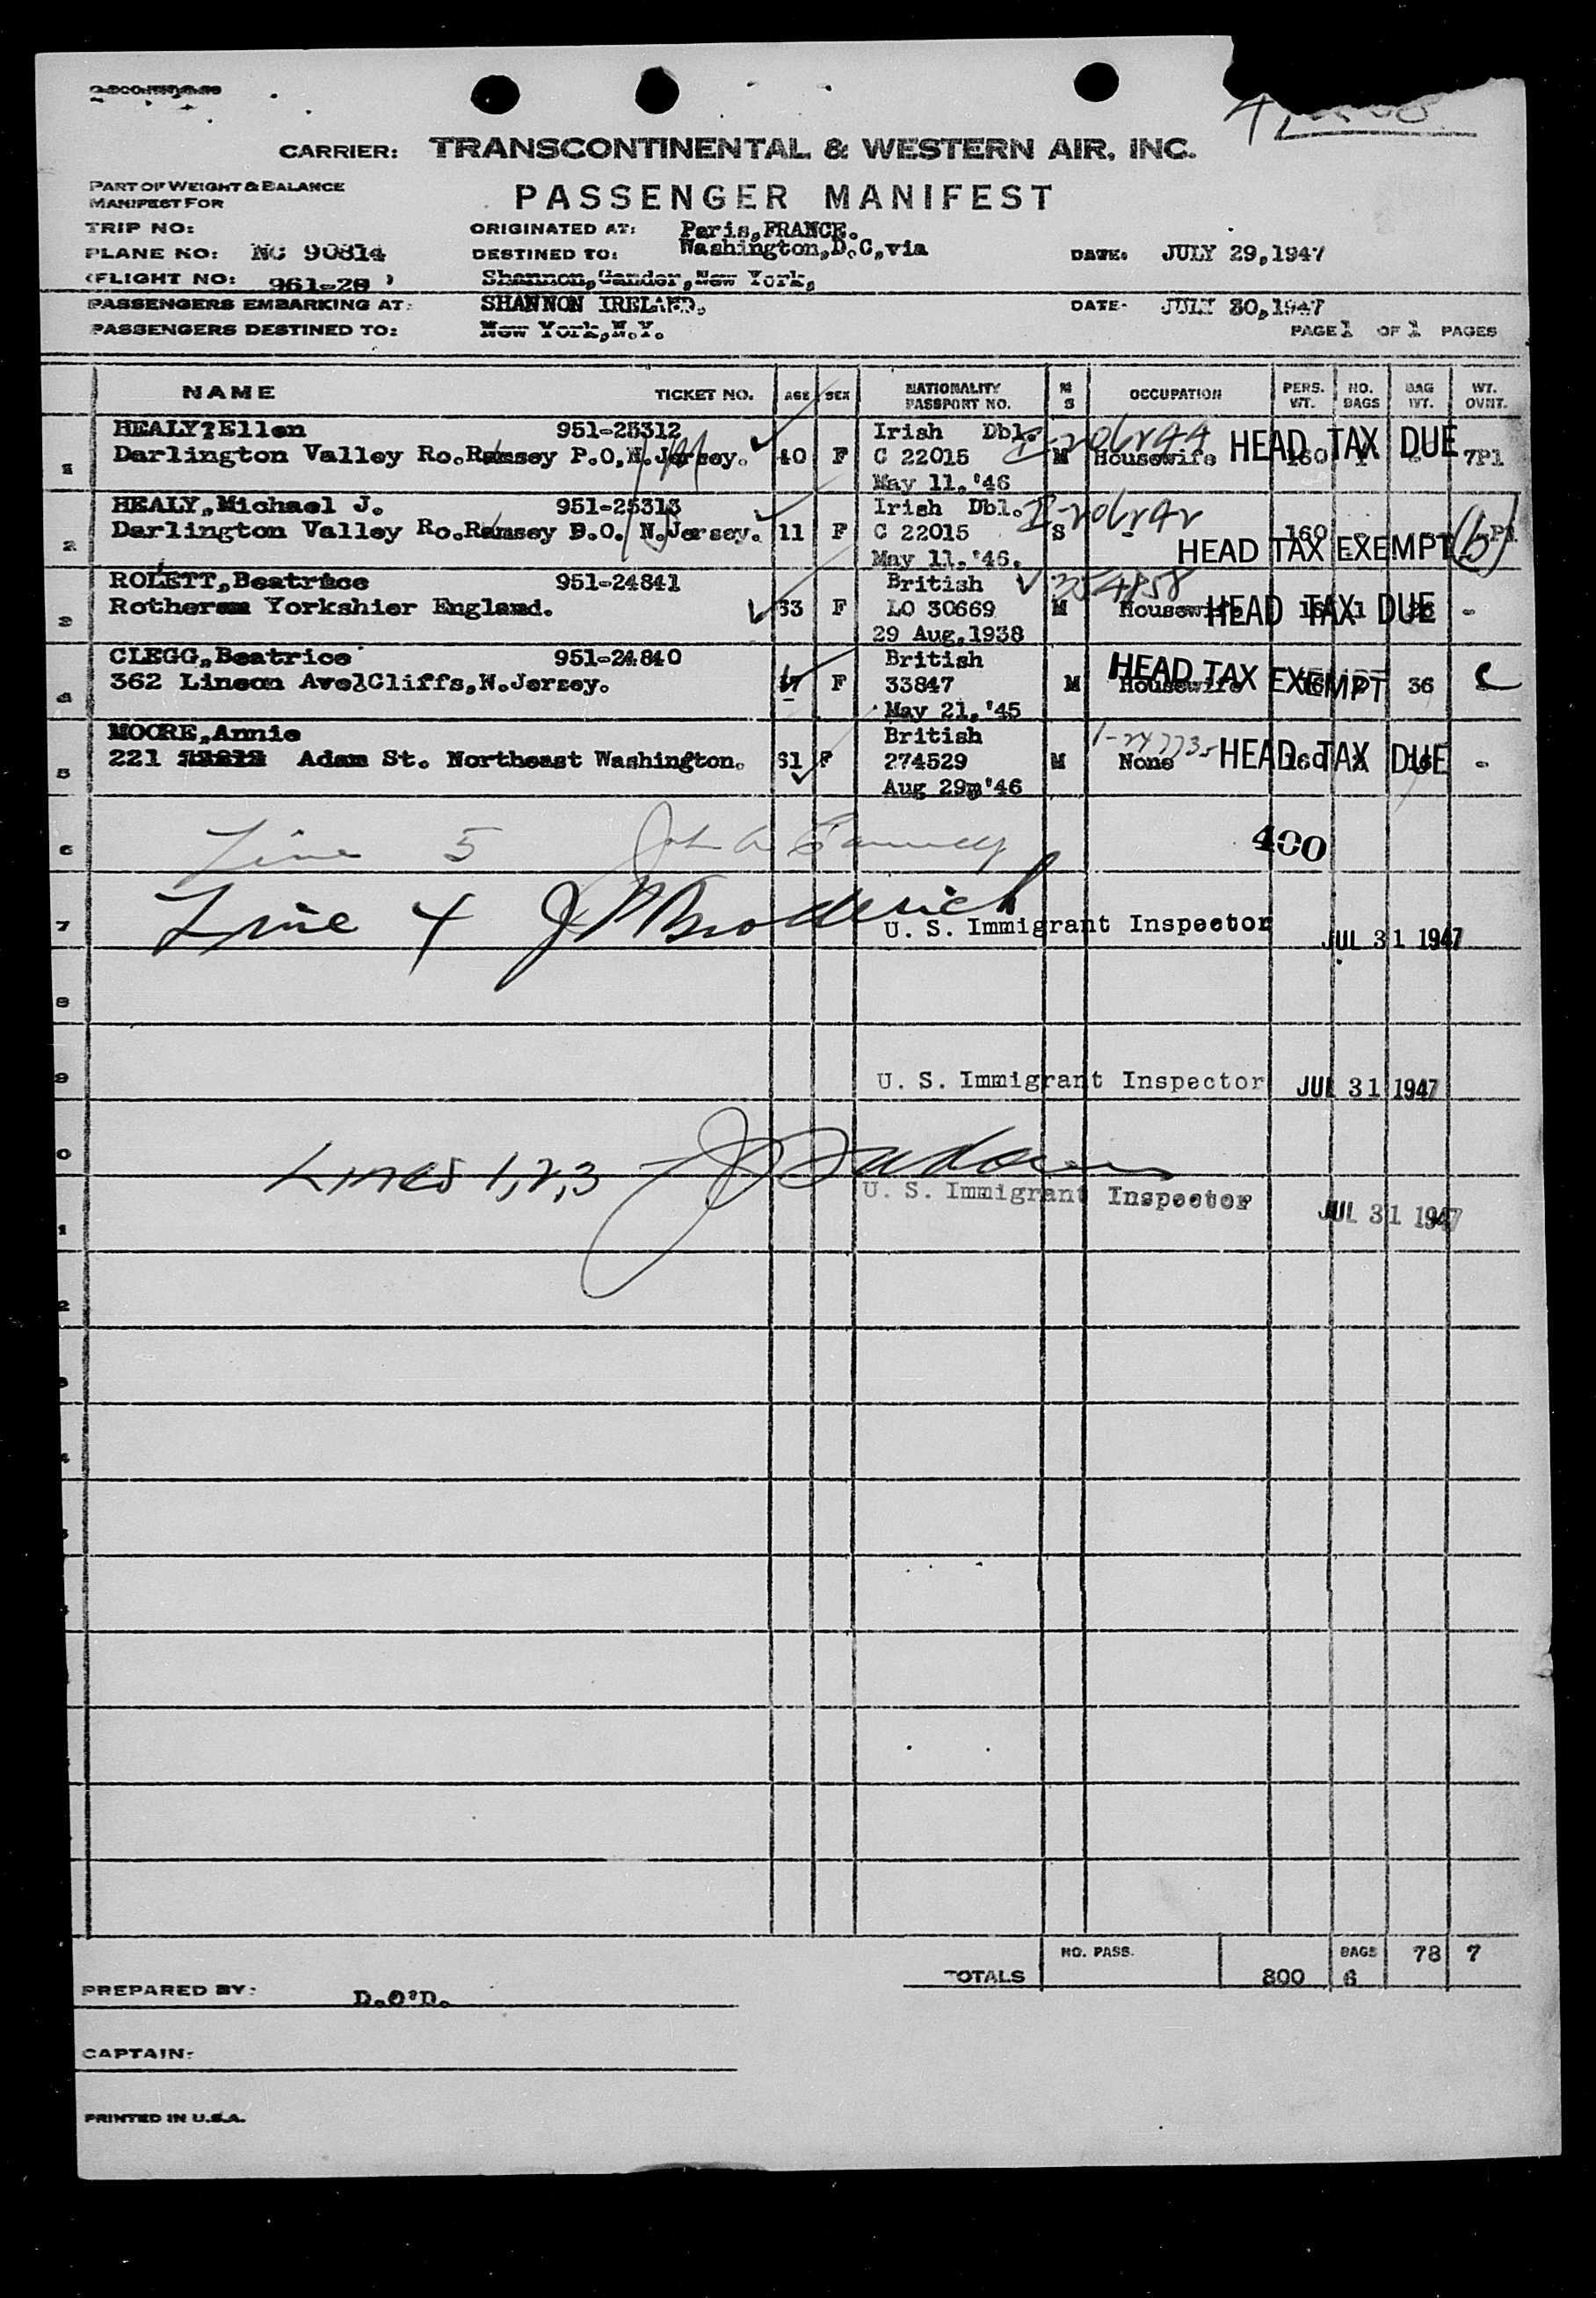 CARRIER: TRANSCONTINENTAL & WESTERN AIR, INC.
PART OF WEIGHT & BALANCE
MANIFEST FOR
PASSENGER MANIFEST
TRIP NO:
ORIGINATED AT: Paris,FRANCE.
PLANE NO: NC 90814
DESTINED TO: Washington,D.C,via
DATE: JULY 29,1947
(FLIGHT NO: 961-28 )
Shannon,Gander,New York,
PASSENGERS EMBARKING AT: SHANNON IRELAND.
DATE- JULY 30,1947
PASSENGERS DESTINED TO: New York,N.Y.
PAGE 1 OF 1 PAGES
NAME TICKET NO. AGE SEX NATIONALITY PASSPORT NO. M S OCCUPATION PERS. WT. NO. BAGS BAG WT. WT. OVWT.
HEALY?Ellen 951-25312 Irish Dbl.
1 Darlington Valley Ro.Ramsey P.O,N.Jersey. 40 F C 22015 M Housewife 160 1 HEAD TAX DUE 7P1
May 11.'46
HEALY,Michael J. 951-25313 Irish Dbl.
2 Darlington Valley Ro.Ramsey P.O. N.Jersey. 11 F C 22015 S - 160 HEAD TAX EXEMPT (b)
May 11.'46.
ROLETT,Beatrice 951-24841 British 354858
3 Rotheram Yorkshier England. 33 F LO 30669 M Housewife HEAD TAX DUE -
29 Aug,1938
CLEGG,Beatrice 951-24840 British
4 362 Lincon Ave1Cliffs,N.Jersey. F 33847 M Housewife HEAD TAX EXEMPT 36 c
May 21,'45
MOORE,Annie British
5 221 Adam St. Northeast Washington. 31 F 274529 M None HEAD TAX DUE -
Aug 29m'46
6 Line 5 400
7 Line 4 J Broderick U. S. Immigrant Inspector JUL 31 1947
8
9 U. S. Immigrant Inspector JUL 31 1947
0 Lines 1,2,3
U. S. Immigrant Inspector JUL 31 1947
1
2
NO. PASS. BAGS 78 7
TOTALS 800 6
PREPARED BY: D.O'D.
CAPTAIN:
PRINTED IN U.S.A.